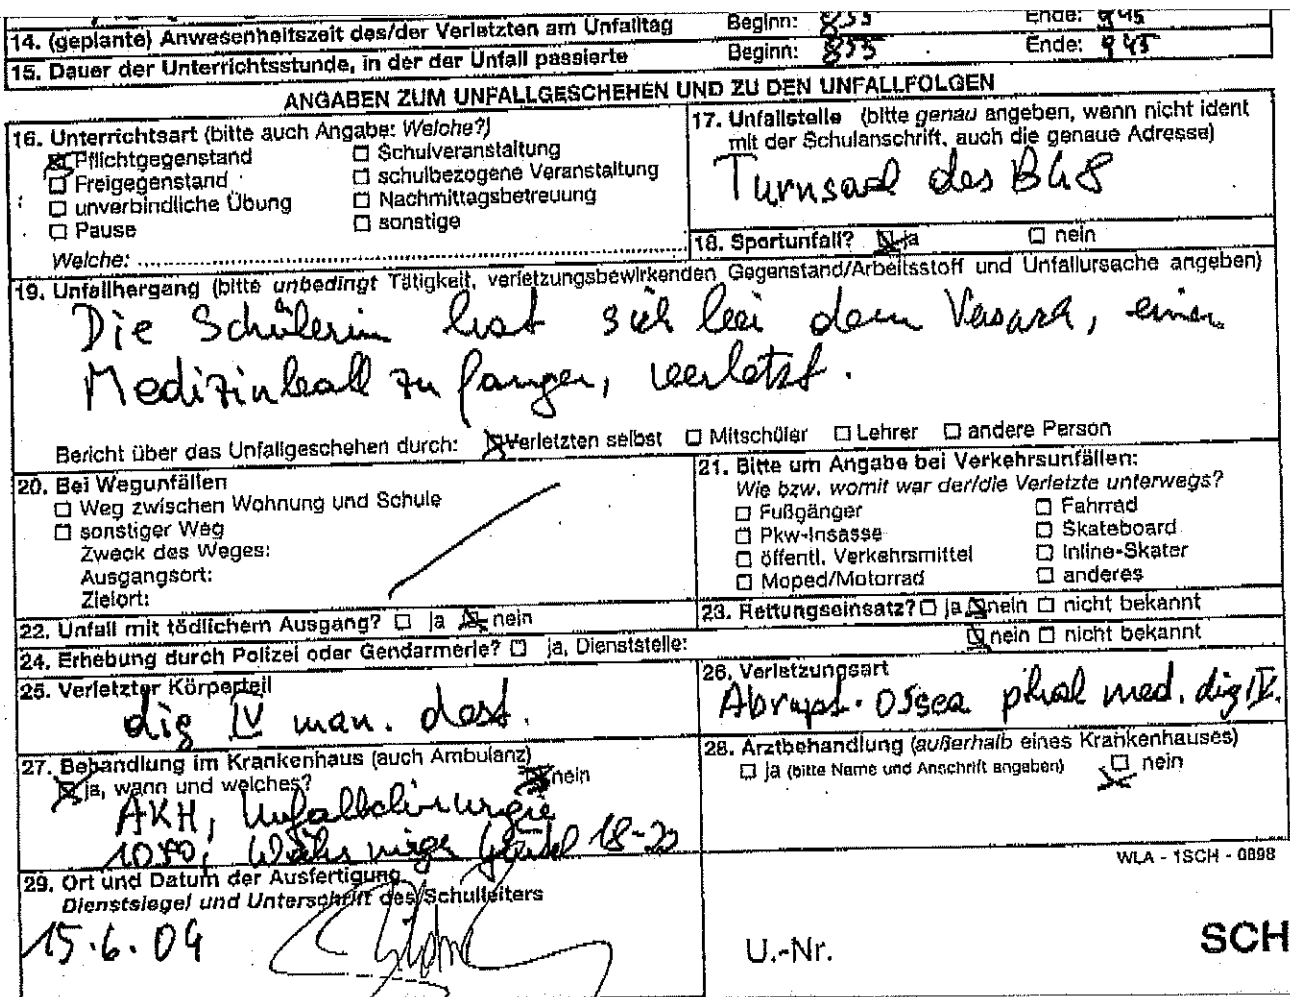 14. (geplante) Anwesenheitszeit des/der Verletzten am Unfalltag Beginn: 8 55 Ende: 9 45
15. Dauer der Unterrichtsstunde, in der der Unfall passierte Beginn: 8 55 Ende: 9 45
ANGABEN ZUM UNFALLGESCHEHEN UND ZU DEN UNFALLFOLGEN
16. Unterrichtsart (bitte auch Angabe: Welche?)
☒ Pflichtgegenstand ☐ Schulveranstaltung
☐ Freigegenstand ☐ schulbezogene Veranstaltung
☐ unverbindliche Übung ☐ Nachmittagsbetreuung
☐ Pause ☐ sonstige
Welche:
17. Unfallstelle (bitte genau angeben, wenn nicht ident
mit der Schulanschrift, auch die genaue Adresse)
Turnsaal des BG8
18. Sportunfall? ☒ ja ☐ nein
19. Unfallhergang (bitte unbedingt Tätigkeit, verletzungsbewirkenden Gegenstand/Arbeitsstoff und Unfallursache angeben)
Die Schülerin hat sich bei dem Versuch, einen
Medizinball zu fangen, verletzt.
Bericht über das Unfallgeschehen durch: ☒ Verletzten selbst ☐ Mitschüler ☐ Lehrer ☐ andere Person
20. Bei Wegunfällen
☐ Weg zwischen Wohnung und Schule
☐ sonstiger Weg
Zweck des Weges:
Ausgangsort:
Zielort:
21. Bitte um Angabe bei Verkehrsunfällen:
Wie bzw. womit war der/die Verletzte unterwegs?
☐ Fußgänger ☐ Fahrrad
☐ Pkw-Insasse ☐ Skateboard
☐ öffentl. Verkehrsmittel ☐ Inline-Skater
☐ Moped/Motorrad ☐ anderes
22. Unfall mit tödlichem Ausgang? ☐ ja ☒ nein
23. Rettungseinsatz? ☐ ja ☒ nein ☐ nicht bekannt
24. Erhebung durch Polizei oder Gendarmerie? ☐ ja, Dienststelle: ☒ nein ☐ nicht bekannt
25. Verletzter Körperteil
dig IV man. dext.
26. Verletzungsart
Abrupt. ossea phal med. dig IV.
27. Behandlung im Krankenhaus (auch Ambulanz)
☒ ja, wann und welches? ☒ nein
AKH, Unfallchirurgie
Währinger Gürtel 18-20
28. Arztbehandlung (außerhalb eines Krankenhauses)
☐ ja (bitte Name und Anschrift angeben) ☒ nein
WLA - 1SCH - 0898
29. Ort und Datum der Ausfertigung
Dienstsiegel und Unterschrift des Schulleiters
15.6.04
U.-Nr.
SCH